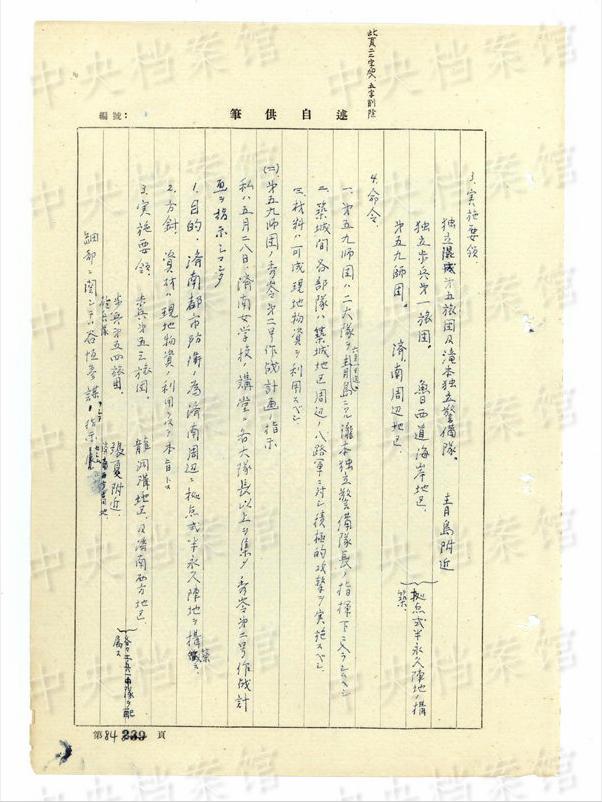 此頁二三字加入、五字削除
編號：
筆供自述
3. 実施要領、
独立混成第五旅団及滝本独立警備隊。 青島附近
独立歩兵第一旅団。 魯西道海岸地区
第五九師団。 済南周辺地区
拠点式半永久陣地ノ構築、
4. 命令、
一、第五九師団ハ二大隊ヲ青島ニ 滝本独立警備隊長ノ指揮下ニ入ラシムベシ
二、築城間各部隊ハ築城地区周辺ノ八路軍ニ対シ積極的攻撃ヲ実施スベシ
三、材料ハ可成現地物資ヲ利用スベシ
(二)、第五九師団ノ秀嶺第二号作戦計画ノ指示
私ハ五月二八日、済南女学校ノ講堂ニ各大隊長以上ヲ集メ秀嶺第二号作戦計
画ヲ指示シマシタ
1. 目的、済南都市防衛ノ為済南周辺ニ拠点式半永久陣地ヲ構築ス
2. 方針、資材ハ現地物資ノ利用ヲ以テ本旨トス
3. 実施要領、歩兵第五三旅団。 龍洞溝地区及済南西方地区
歩兵第五四旅団。 張夏附近
各 工兵一中隊ヲ配属ス
細部ニ関シテハ谷恒参謀 指示
第84 239頁
中央档案馆